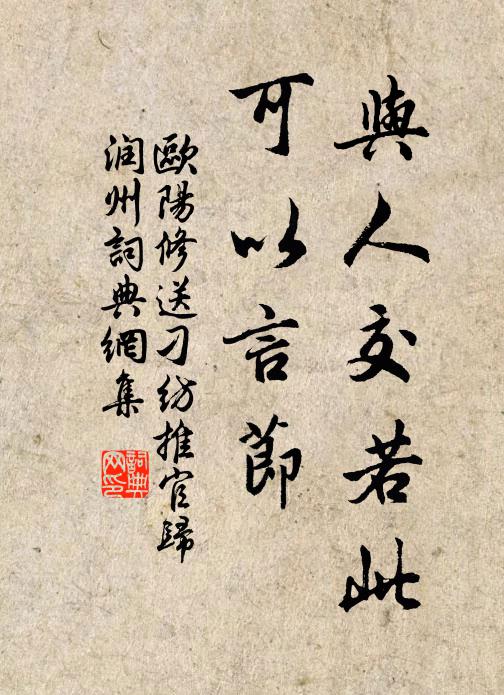 與人交若此
可以言節
歐陽修送刁紡推官歸
潤州詞典網集
詞典
网印